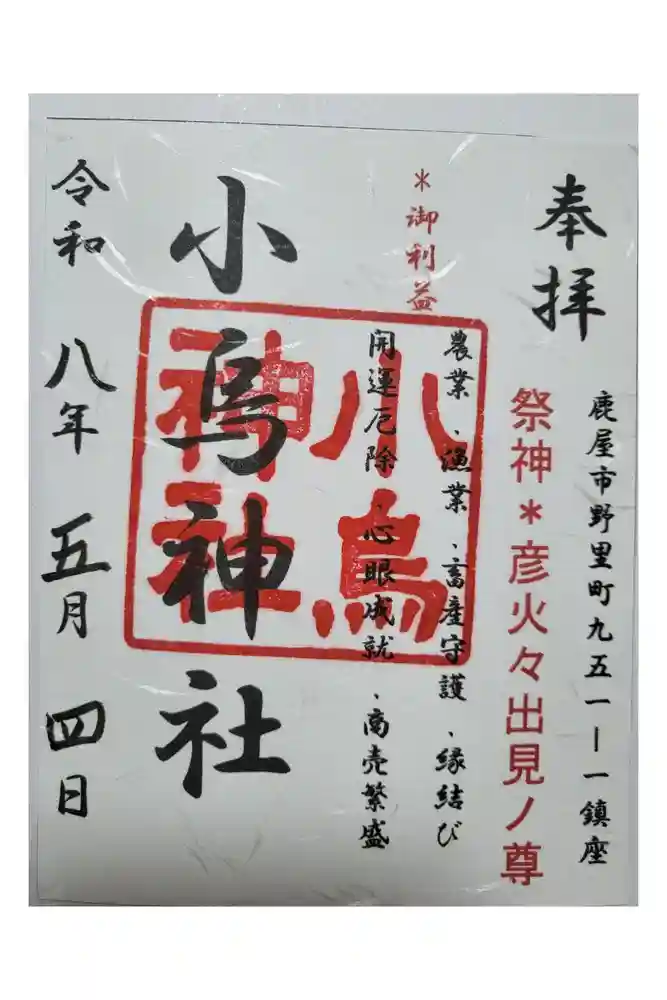 奉拝
鹿屋市野里町九五一ー一鎮座
祭神＊彦火々出見ノ尊
＊御利益
農業、漁業、畜産守護、縁結び
開運厄除、心眼成就、商売繁盛
小烏神社
小烏
神社
令和八年五月四日